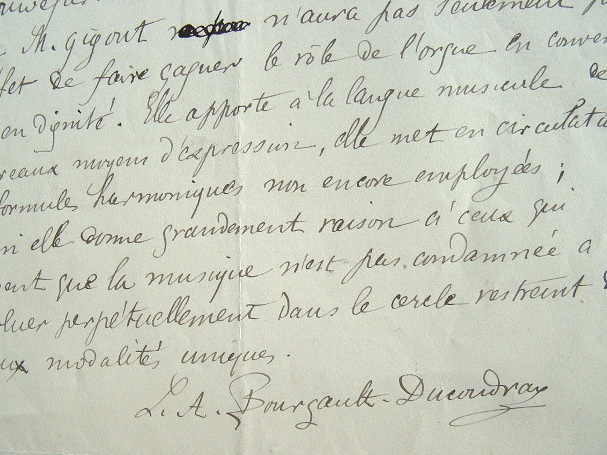 M. Gigout n'aura pas seulement
fet de faire gagner le rôle de l'orgue en conven
en dignité. Elle apporte à la langue musicale de
veaux moyens d'expression, elle met en circulati
formules harmoniques non encore employées ;
ni elle donne grandement raison à ceux qui
sent que la musique n'est pas condamnée à
oluer perpétuellement dans le cercle restreint
ux modalités uniques.
L. A. Bourgault-Ducoudray